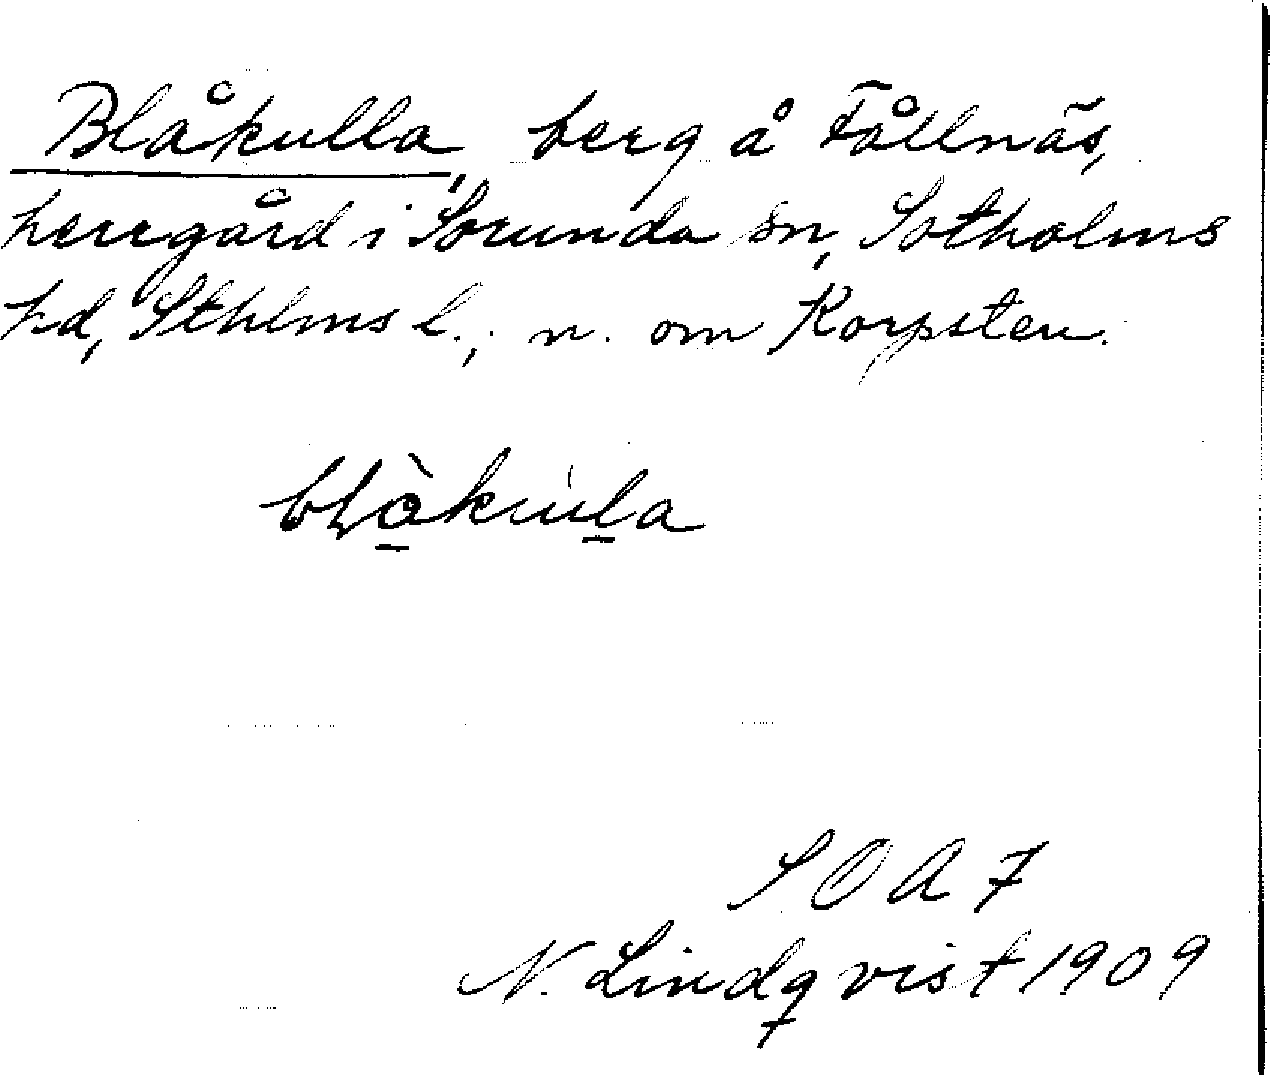 Blåkulla, berg å Fållnäs,
herrgård i Sorunda sn, Sotholms
hd, Sthlms l., n. om Korpsten.
blåkula
S O A 7
N. Lindqvist 1909